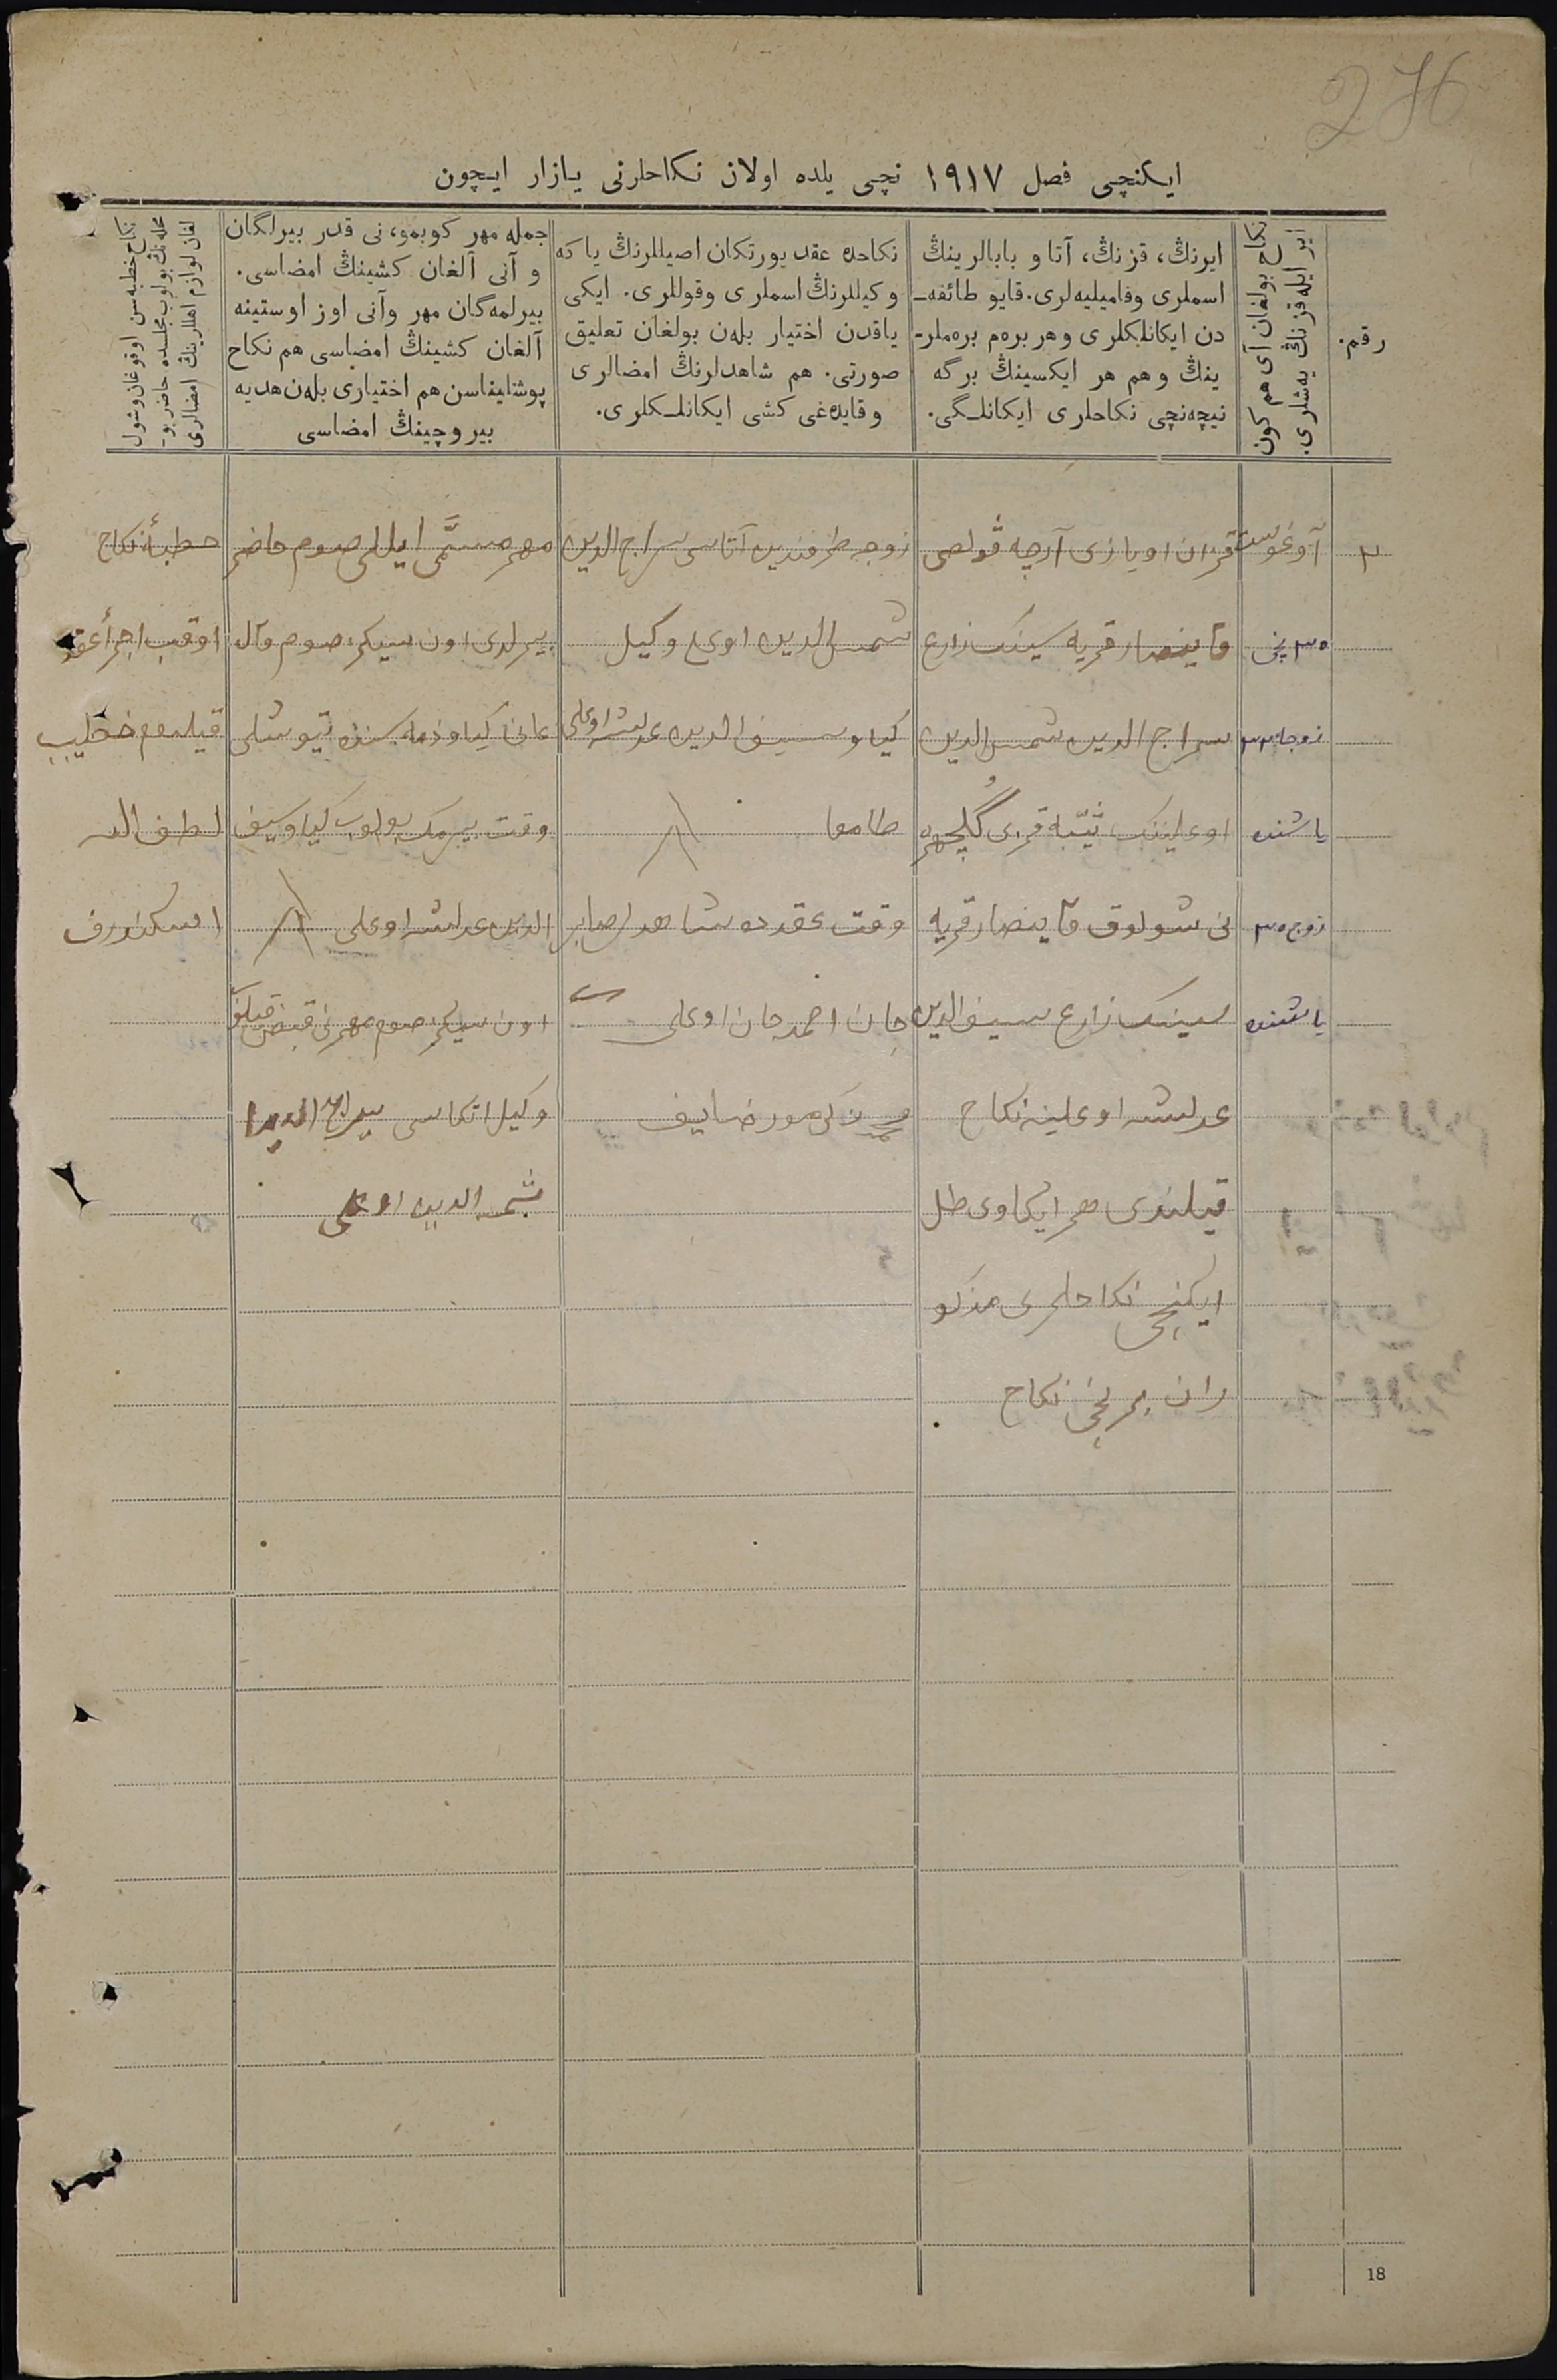 276
ایکنچی فصل ١٩١٧ نچی یلده اولان نکاحلرنی یازار ایچون
رقم.
نکاح بولغان آی هم کون
ایر ایله قزنڭ یه‌شلری.
ایرنڭ، قزنڭ، آتا و بابالرینڭ
اسملری وفامیلیه‌لری. قایو طائفه‌ـ
دن ایکانلکلری وهر بره‌م بره‌ملرـ
ینڭ وهم هر ایکسینڭ برگه
نیچه‌نچی نکاحلری ایکانلـگی.
نکاحده عقد یورتکان اصیللرنڭ یا که
وکیللرنڭ اسملری وقوللری. ایکی
یاقدن اختیار بله‌ن بولغان تعلیق
صورتی. هم شاهدلرنڭ امضالری
وقایده‌غی کشی ایکانلـکلری.
جمله مهر کوبمو، نی قدر بیرلگان
و آنی آلغان کشینڭ امضاسی.
بیرلمه‌گان مهر وآنی اوز اوستینه
آلغان کشینڭ امضاسی هم نکاح
پوشلیناسن هم اختیاری بله‌ن هدیه
بیروچینڭ امضاسی
نکاح خطبه‌سن اوقوغان وشول
محله‌نڭ بولوب مجلسده حاضر بوـ
لغان لوازم اهللرینڭ امضالری
٢
آوغوست
٣٠ نچی
زوجه ٢٢
یاشنده
زوج ٣٥
یاشنده
قزان اویازی آرچه ڤولصی
قاینصار قریه سینک زارع
سراج الدین شمس الدین
اوغلینک ثیّبه قزی گلچهره
نی شولوق قاینصار قریه
سینک زارع سیف الدین
عدلشه اوغلینه نکاح
قیلندی هر ایکاوی طل
ایکنچی نکاحلری مذکو
ران برنچی نکاح
زوجه طرفندین آتاسی سراج الدین
شمس الدین اوغلی وکیل
کیاو سیف الدین عدلشه اوغلی
طامغا
وقت عقدده شاهدلر صابر
جان احمدجان اوغلی
مهر مسمّی ایللی صوم حاضر
بیرلدی اون سیکز صوم قال
غانی کیاو ذمه‌سنده تیوشلی
وقت بیرمک بولوب کیاو سیف
الدین عدلشه اوغلی
اون سیکز صوم مهرنی قبض قیلغو
وکیل اتکاسی سراج الدین
شمس الدین اوغلی
خطبهٔ نکاح
اوقوب اجرأ عقد
قیلدم خطیب
لطف الله
اسکندروف
18